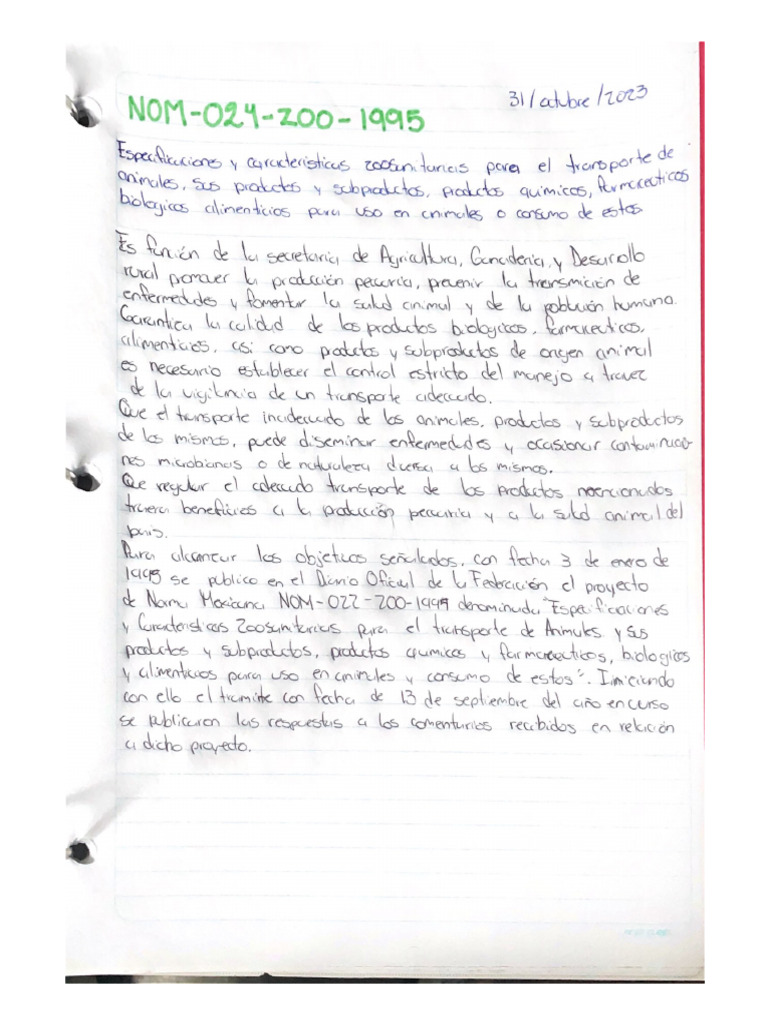 31/octubre/2023
NOM-024-ZOO-1995
Especificaciones y caracteristicas zoosanitarias para el transporte de
animales, sus productos y subproductos, productos quimicos, farmaceuticos
biologicos alimenticios para uso en animales o consumo de estos
Es función de la secretaria de Agricultura, Ganaderia, y Desarrollo
rural promover la producción pecuaria, prevenir la transmición de
enfermedades y fomentar la salud animal y de la población humana.
Garantica la calidad de los productos biologicos, farmaceuticos,
alimenticios, asi como productos y subproductos de origen animal
es necesario establecer el control estricto del manejo a travez
de la vigilancia de un transporte adecuado.
Que el transporte inadecuado de los animales, productos y subproductos
de los mismos, puede diseminar enfermedades y ocasionar contaminacio
nes microbianas o de naturaleza diversa a los mismos.
Que regular el adecuado transporte de los productos mencionados
traera beneficios a la producción pecuaria y a la salud animal del
pais.
Para alcanzar los objetivos señalados, con fecha 3 de enero de
1995 se publico en el Diario Oficial de la Federación el proyecto
de Norma Mexicana NOM-022-ZOO-1995 denominada "Especificaciones
y Caracteristicas Zoosanitarias para el transporte de Animales y sus
productos y subproductos, productos quimicos y farmaceuticos, biologicos
y alimenticios para uso en animales y consumo de estos". Iniciando
con ello el tramite con fecha de 13 de septiembre del año en curso
se publicaron las respuestas a los comentarios recibidos en relación
a dicho proyecto.